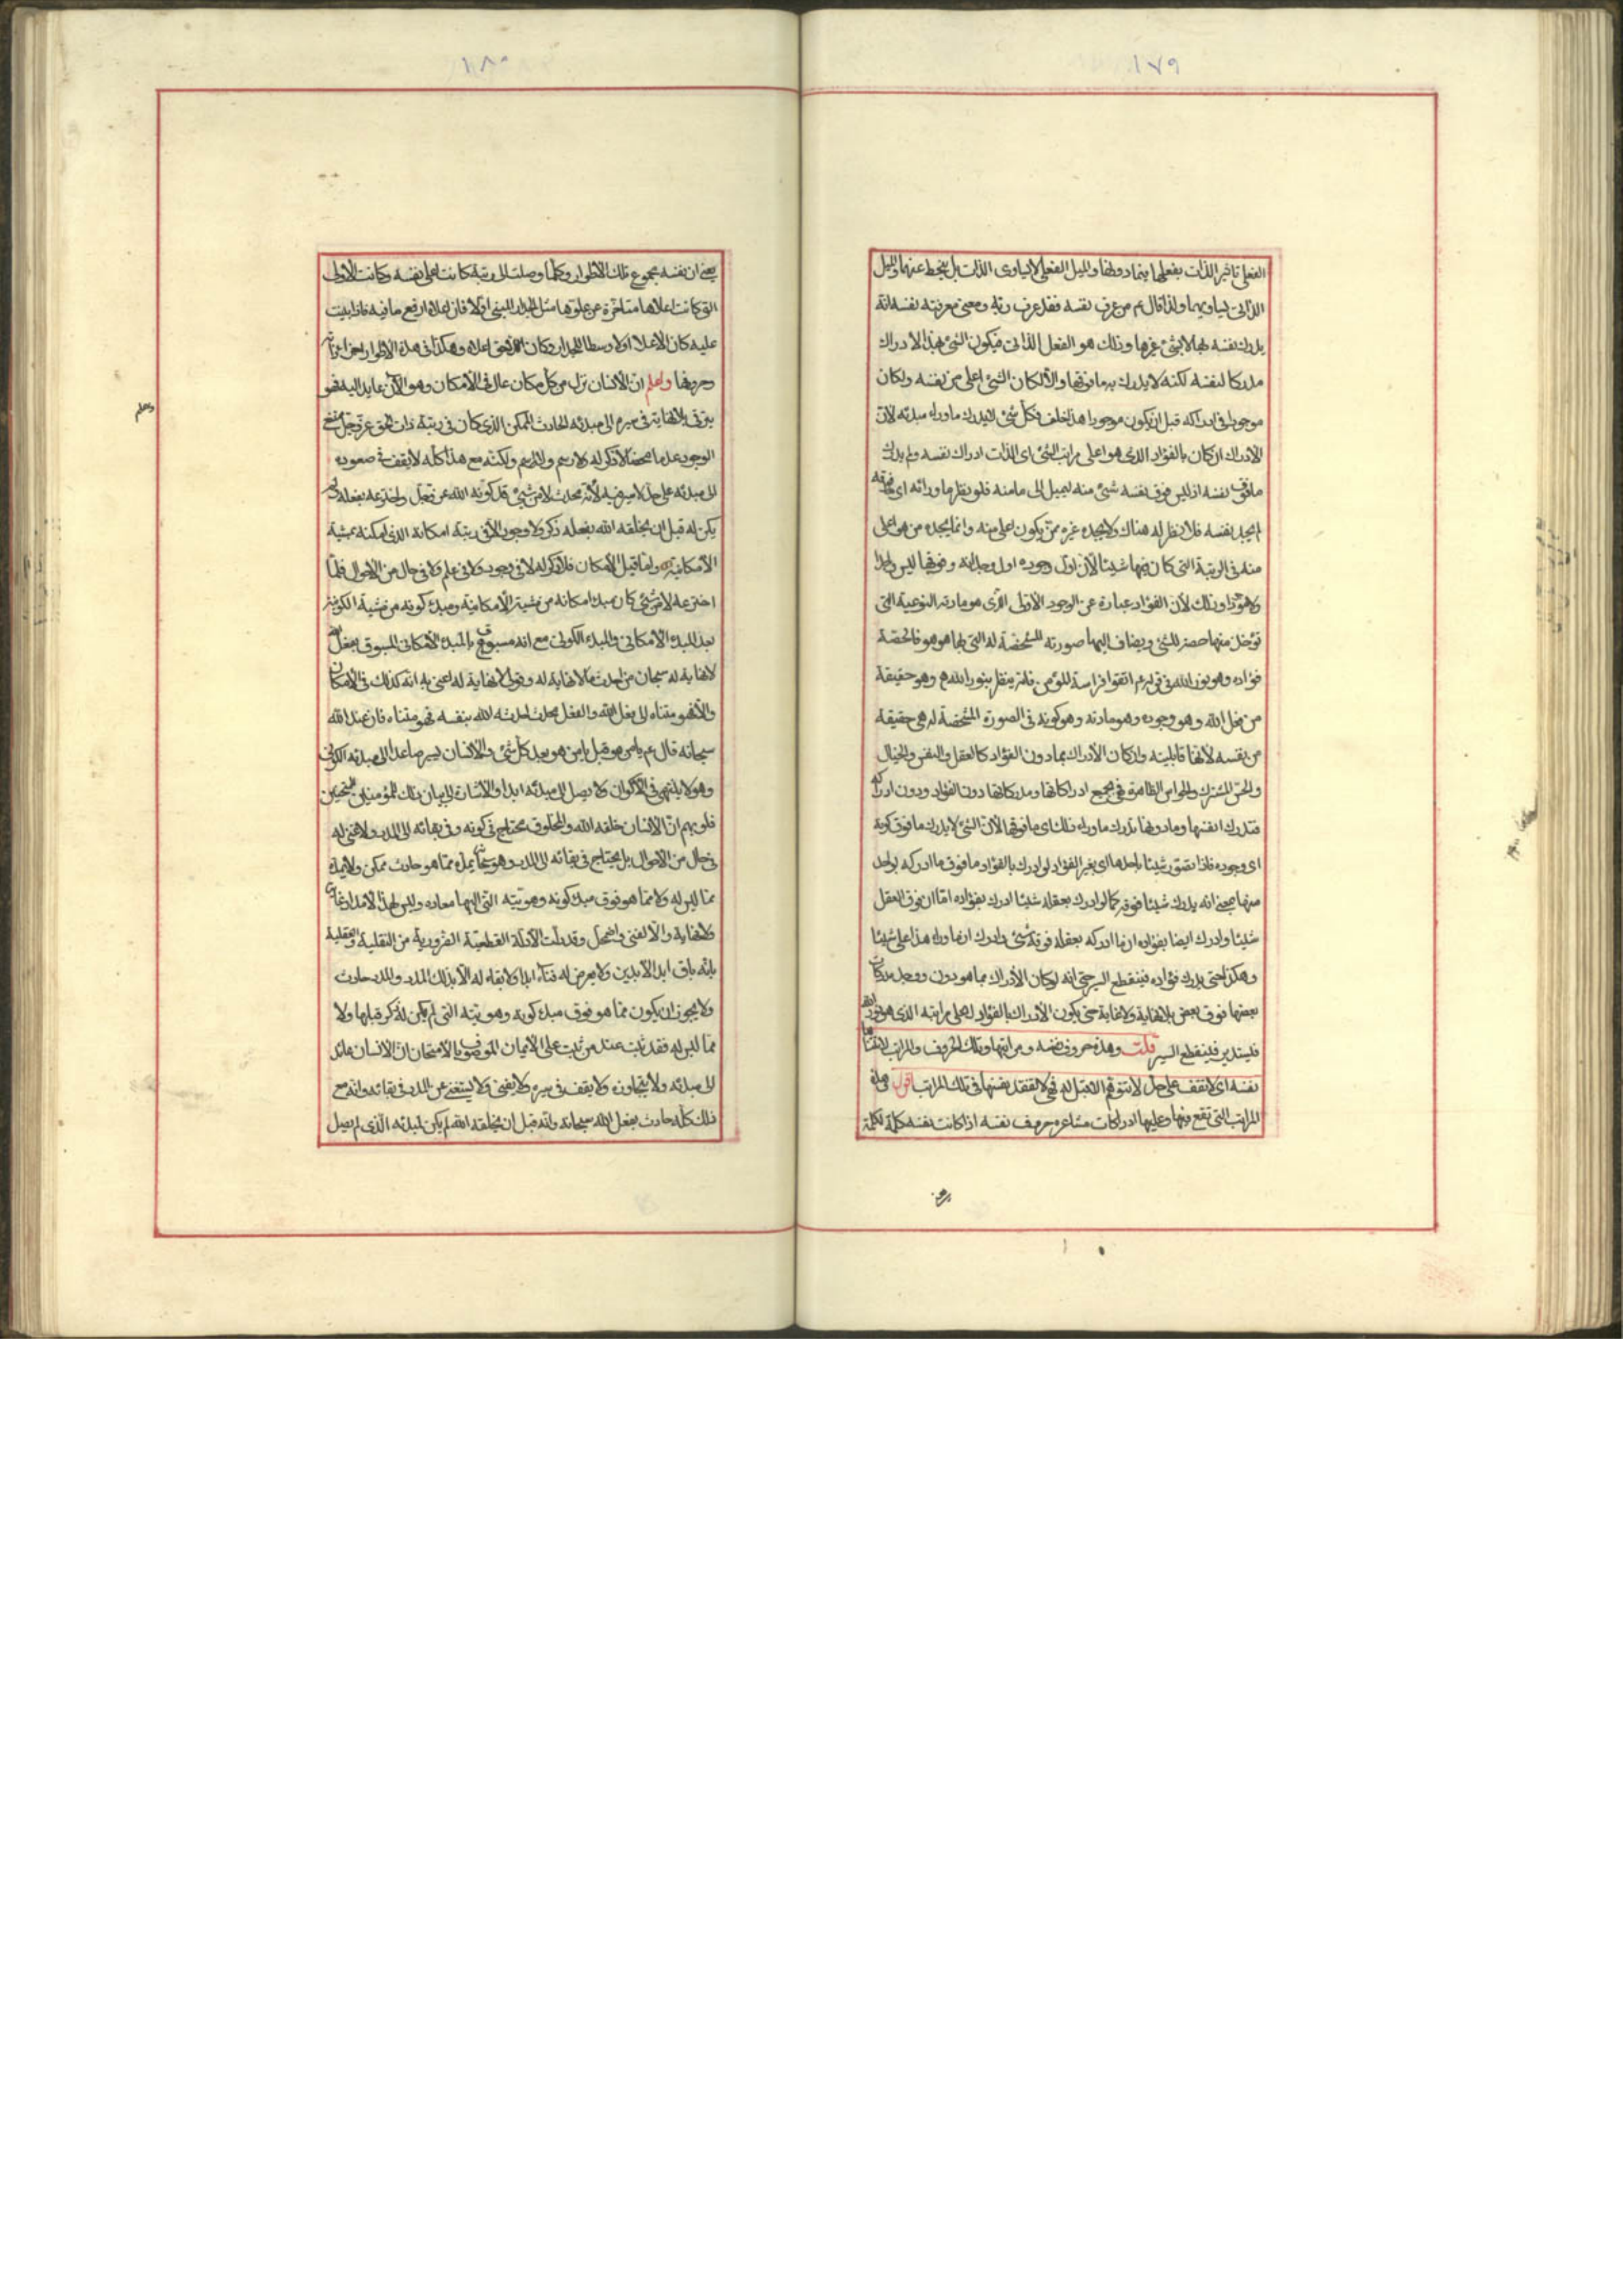 ١٧٩
الفعلي تاثير الذات بفعلها فيما دونها والميل الفعلي لايساوى الذات بل ينحط عنها والميل
الذاتى يساويها ولذا قال ع من عرف نفسه فقد عرف ربه ومعنى معرفته نفسه انه
يدرك نفسه بها لابشئ غيرها وذلك هو الفعل الذاتى فيكون الشئ بهذا الادراك
مدركا لنفسه لكنه لايدرك به مافوقها والا لكان الشئ اعلى من نفسه ولكان
موجودا فى ادراكه قبل ان يكون موجودا هذا خلف فكل شئ لايدرك ماوراء مبدئه لان
الادراك ان كان بالفؤاد الذى هو اعلى مراتب الشئ اى الذات ادراك نفسه ولم يدرك
مافوق نفسه اذ ليس فوق نفسه شئ منه ليميل الى مامنه فلو نظر ماورائه اى مافوقه
لم يجد نفسه فلا نظر له هناك ولايجده غيره ممن يكون اعلى منه وانما يجده من هو اعلى
منه فى الرتبة التى كان فيها شيئا لان اول وجوده اول وجدانه وفوقها ليس واجدا
ولا موجودا وذلك لان الفؤاد عبارة عن الوجود الاولى الذى هو مادته النوعية التى
تؤخذ منها حصة للشئ ويضاف اليها صورته المشخصة له التى بها هو هو فالحصة
فؤاده وهو نور الله فى قوله ع اتقوا فراسة المؤمن فانه ينظر بنور الله وهو حقيقة
من فعل الله وهو وجوده وهو مادته وهو كونه فى الصورة المشخصة له هى حقيقة
من نفسه لانها قابليته وان كان الادراك بما دون الفؤاد كالعقل والنفس والخيال
والحس المشترك والحواس الظاهرة فهى بجميع ادراكاتها ومدركاتها دون الفؤاد ودون ادراكه
فتدرك انفسها ومادونها ولاتدرك ماوراء ذلك اى مافوقها لان الشئ لايدرك مافوق كونه
اى وجوده فاذا تصور شيئا باحدها اى بغير الفؤاد لو ادرك بالفؤاد مافوق ماادركه بواحد
منها بمعنى انه يدرك شيئا فوقه كما لو ادرك بعقله شيئا ادرك بفؤاده اما ان فوق العقل
شيئا وادرك ايضا بفؤاده ان ماادركه بعقله فوقه شئ وادرك ان ماوراء هذا على شيئا
وهكذا حتى يدرك فؤاده فينقطع السير حتى انه لو كان الادراك بما هو دون ووجد مدركات
بعضها فوق بعض بلانهاية ولاغاية حتى يكون الادراك بالفؤاد لاعلى مراتبه الذى هو نور الله
فليتدبر فلينقطع السير قلت وهذه حروف نفسه ومراتبها وتلك الحروف والمراتب لاتفنى بها
نفسه اى لاتقف على حد لاتتوقع التقبل له فهى لاتفقد نفسها فى تلك المراتب اقول فى هذه
المراتب التى تقع فيها وعليها ادراكات مشاعره حروف نفسه اذا كانت نفسه كلمة لكلمة
١٨٠
يعنى ان نفسه مجموع تلك الاطوار وكلما وصلت الى رتبة كانت اعلى نفسه وكانت الاولى
التى كانت اعلاها متاخرة عن علوها مثل الجدار المبنى اولا فان اعلاه ارفع مافيه فاذا بنيت
عليه كان الاعلا اولا وسطا للجدار وكان الاخير اعلاه وهكذا فى هذه الاطوار
وحروفها واعلم ان الانسان نزل من كل مكان عال فى الامكان وهو الان عايد اليه فهو
يترقى بلانهاية فى سيره الى مبدئه الحادث الممكن الذى كان فى رتبة ذات الحق عز وجل ممتنع
الوجود عدما محضا لا ذكر له ولارسم ولا اسم ولكنه مع هذا كله لايقف فى صعوده
الى مبدئه على حد لاسير فيه لانه محدث لامن شئ قد كونه الله عز وجل واخترعه بفعله لم
يكن له قبل ان يخلقه الله بفعله ذكر ولاوجود الا فى رتبة امكانه الذى امكنه بمشيته
الامكانية واما قبل الامكان فلا ذكر له لا فى وجود ولا فى علم ولا فى حال من الاحوال فلما
اخترعه لامن شئ كان مبدء امكانه من مشيته الامكانية ومبدء كونه من مشيته الكونية
بعد المبدء الامكانى والمبدء الكونى مع انه مسبوق بالمبدء الامكانى المسبوق بفعل
لانهاية له سبحان من احدث مالانهاية له وقولى لانهاية له اعنى به انه كذلك فى الامكان
والا فهو متناه الى فعل الله والفعل محدث احدثه الله بنفسه فهو متناه فان عند الله
سبحانه قال ع يامن هو قبل يامن هو بعد كل شئ والانسان يسير صاعدا الى مبدئه الكونى
وهو لاينتهى فى الاكوان ولايصل الى مبدئه ابدا والاشارة الى بيان ذلك للمؤمنين الممتحنين
قلوبهم ان الانسان خلقه الله والمخلوق محتاج فى كونه وفى بقائه الى المدد ولاغنى له
فى حال من الاحوال بل يحتاج فى بقائه الى المدد وهو يمد مما هو حادث ممكن ولايمد
مما ليس له ولا مما هو فوق مبدء كونه وهويته التى اليها معاده وليس لهذا الامداد غاية
ولانهاية والا لفنى واضمحل وقد دلت الادلة القطعية الضرورية من النقلية والعقلية
بانه باق ابد الابدين ولايعرض له فناء ابدا ولابقاء له الا بذلك المدد والمدد حادث
ولايجوز ان يكون مما هو فوق مبدء كونه وهويته التى لم يكن له ذكر قبلها ولا
مما ليس له فقد ثبت عند من ثبت على الايمان الموصوف بالامتحان ان الانسان عائد
الى مبدئه ولايتجاوزه ولايقف فى سيره ولايفنى ولايستغنى عن المدد فى بقائه وانه مع
ذلك كله حادث بفعل الله سبحانه وانه قبل ان يخلقه الله لم يكن لمبدئه الذى لم يصل